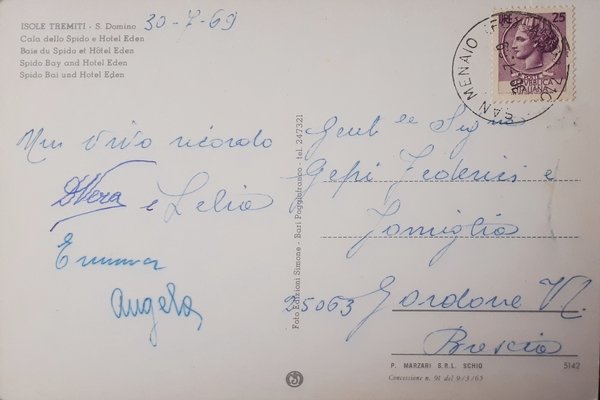 ISOLE TREMITI - S. Domino
Cala dello Spido e Hotel Eden
Baie du Spido et Hôtel Eden
Spido Bay and Hotel Eden
Spido Bai und Hotel Eden
30-7-69
Un vivo ricordo
Vera e Lelia
Emma
Angela
Foto Edizioni Simone - Bari Poggiofranco - tel. 247321
25
REPUBBLICA
ITALIANA
SAN MENAIO
Gent.
Gepi Federici e
Famiglia
25063 Gardone V.
Brescia
P. MARZARI S.R.L. SCHIO
Concessione n. 91 del 9/3/65
5142